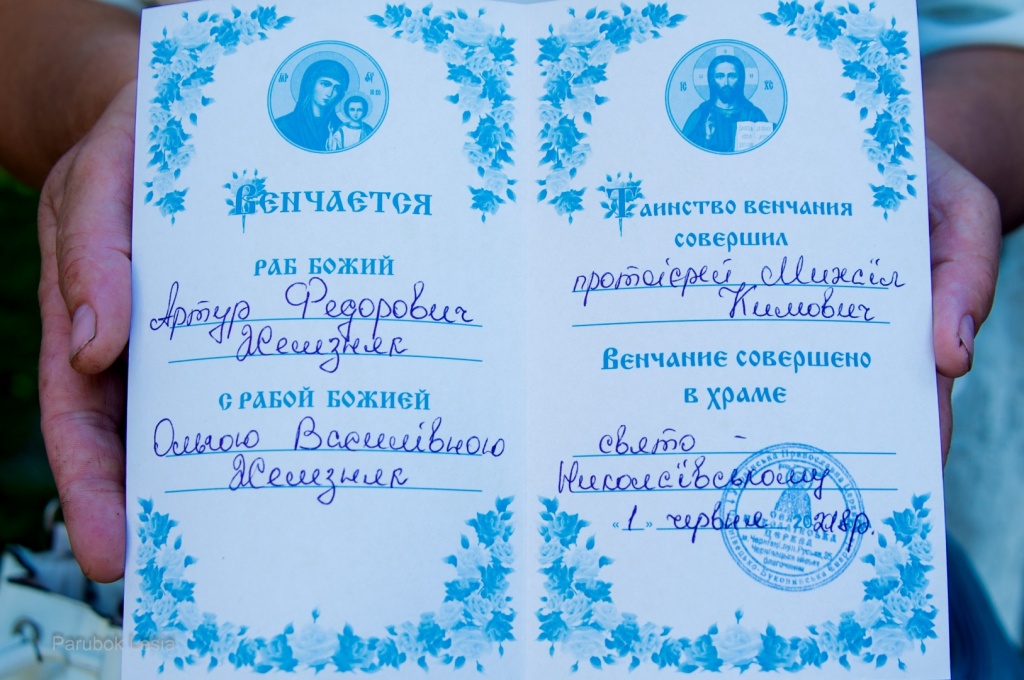 Венчается
раб божий
Артур Федорович
Железняк
с рабой божией
Ольгою Василівною
Железняк
Таинство венчания
совершил
протоієрей Михаїл
Кимович
Венчание совершено
в храме
свято -
Николаївському
«1» червня 2018р.
Parubok Lesia